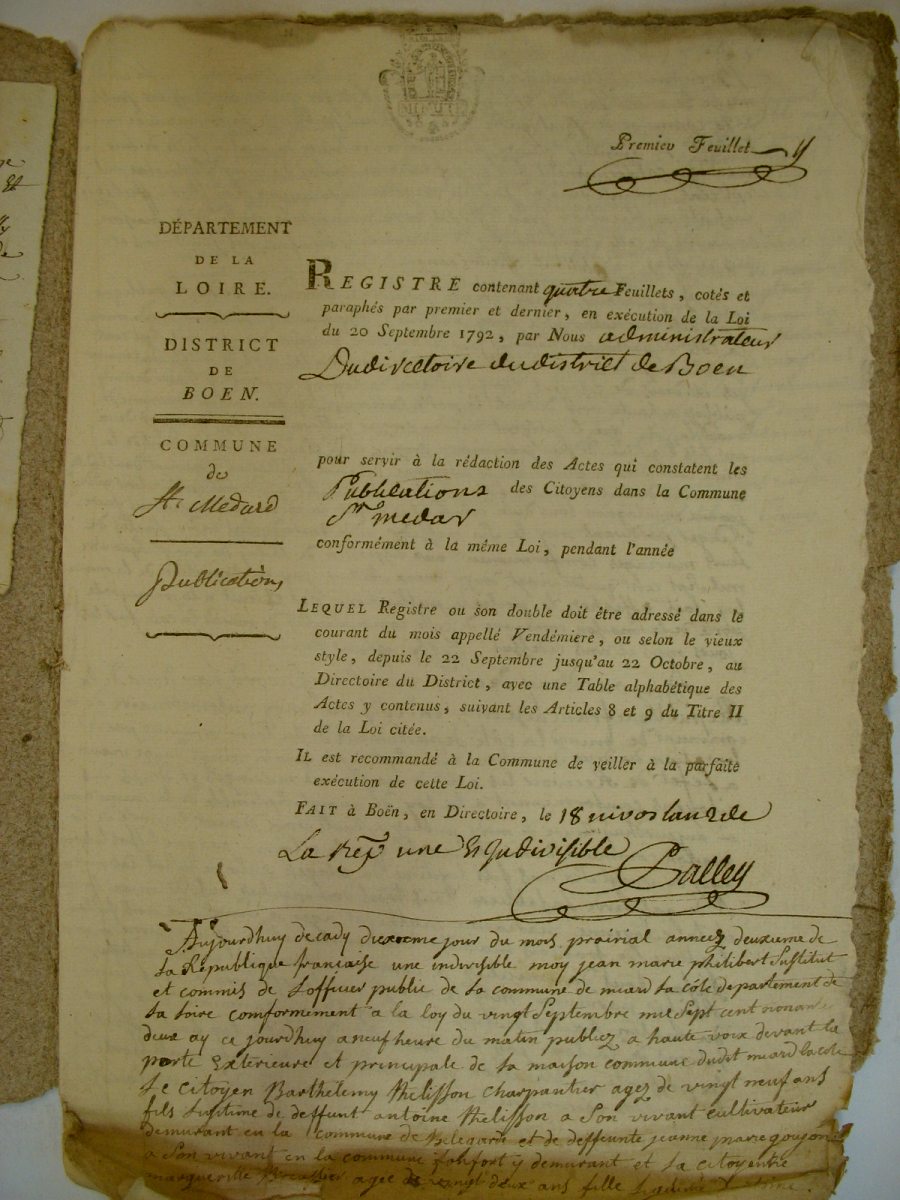 Premier Feuillet
DÉPARTEMENT
DE LA
LOIRE.
DISTRICT
DE
BOEN.
COMMUNE
de
St. Medard
Publications
REGISTRE contenant quatre Feuillets, cotés et
paraphés par premier et dernier, en exécution de la Loi
du 20 Septembre 1792, par Nous administrateur
Du directoire du district de Boen
pour servir à la rédaction des Actes qui constatent les
Publications des Citoyens dans la Commune
St medar
conformément à la même Loi, pendant l'année
LEQUEL Registre ou son double doit être adressé dans le
courant du mois appellé Vendémiere, ou selon le vieux
style, depuis le 22 Septembre jusqu'au 22 Octobre, au
Directoire du District, avec une Table alphabétique des
Actes y contenus, suivant les Articles 8 et 9 du Titre II
de la Loi citée.
IL est recommandé à la Commune de veiller à la parfaite
exécution de cette Loi.
FAIT à Boën, en Directoire, le 18 nivos lan 2 de
La Rep une & Indivisible
Aujourdhuy decady dixieme jour du mois prairial anneez deuxieme de
la Republique francaise une indivisible moy jean marie philibert Sustitut
et commis de Lofficier public de la commune de miard la cote departement de
la Loire comformement a la loy du vingt Septembre mil Sept cent nonante
deux ay ce jourdhuy a neuf heure du matin publiez a haute voix devant la
porte Exterieure et principale de la maison commune dudit miard la cote
Le citoyen Barthelemy thelisson charpantier agez de vingt neuf ans
fils Legitime de deffunt antoine thelisson a Son vivant cultivateur
demurant en la commune de et de deffeunte jeanne marie goujon
a Son vivant en la commune y demurant et la citoyenne
marguerite agee de vingt deux ans fille